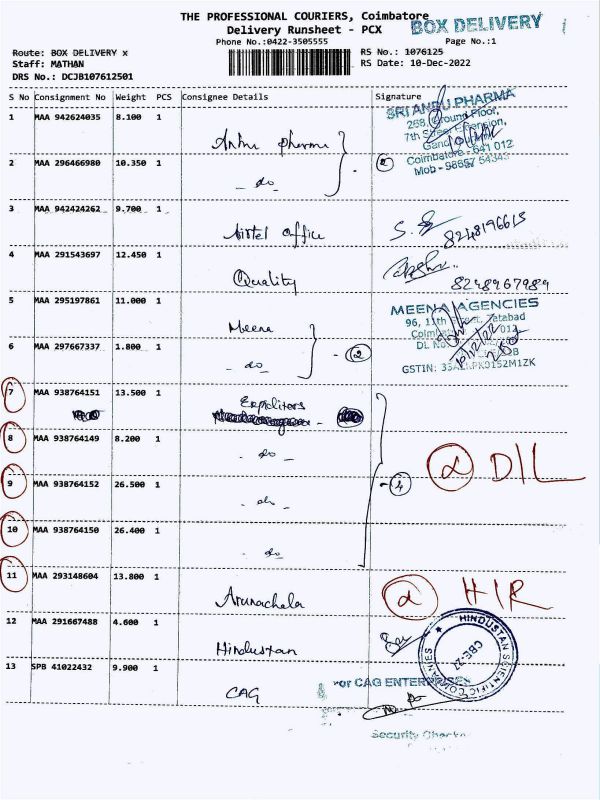 THE PROFESSIONAL COURIERS, Coimbatore
BOX DELIVERY
Delivery Runsheet - PCX
Phone No.:0422-3505555
Page No.:1
Route: BOX DELIVERY x
RS No.: 1076125
Staff: MATHAN
RS Date: 10-Dec-2022
DRS No.: DCJB107612501
S No Consignment No Weight PCS Consignee Details Signature
1 MAA 942624035 8.100 1
SRI ANBU PHARMA
268, Ground Floor,
7th Street Extension,
Coimbatore - 641 012
Mob - 98657 54343
Anbu pharma
2 MAA 296466980 10.350 1
- do -
2
3 MAA 942424262 9.700 1
Airtel office
8248196615
4 MAA 291543697 12.450 1
Quality
8248967989
5 MAA 295197861 11.000 1
Meena
MEENA AGENCIES
96, 11th Street, Tatabad
10/12/22
6 MAA 297667337 1.800 1
- do -
2
7 MAA 938764151 13.500 1
Expditors
8 MAA 938764149 8.200 1
- do -
α D/L
9 MAA 938764152 26.500 1
- do -
4
10 MAA 938764150 26.400 1
- do -
11 MAA 293148604 13.800 1
Arunachala
α H/R
12 MAA 291667488 4.600 1
Hindustan
HINDUSTAN SCIENTIFIC COMPANIES
CBE-27
13 SPB 41022432 9.900 1
CAG
For CAG ENTERPRISES
Security Check